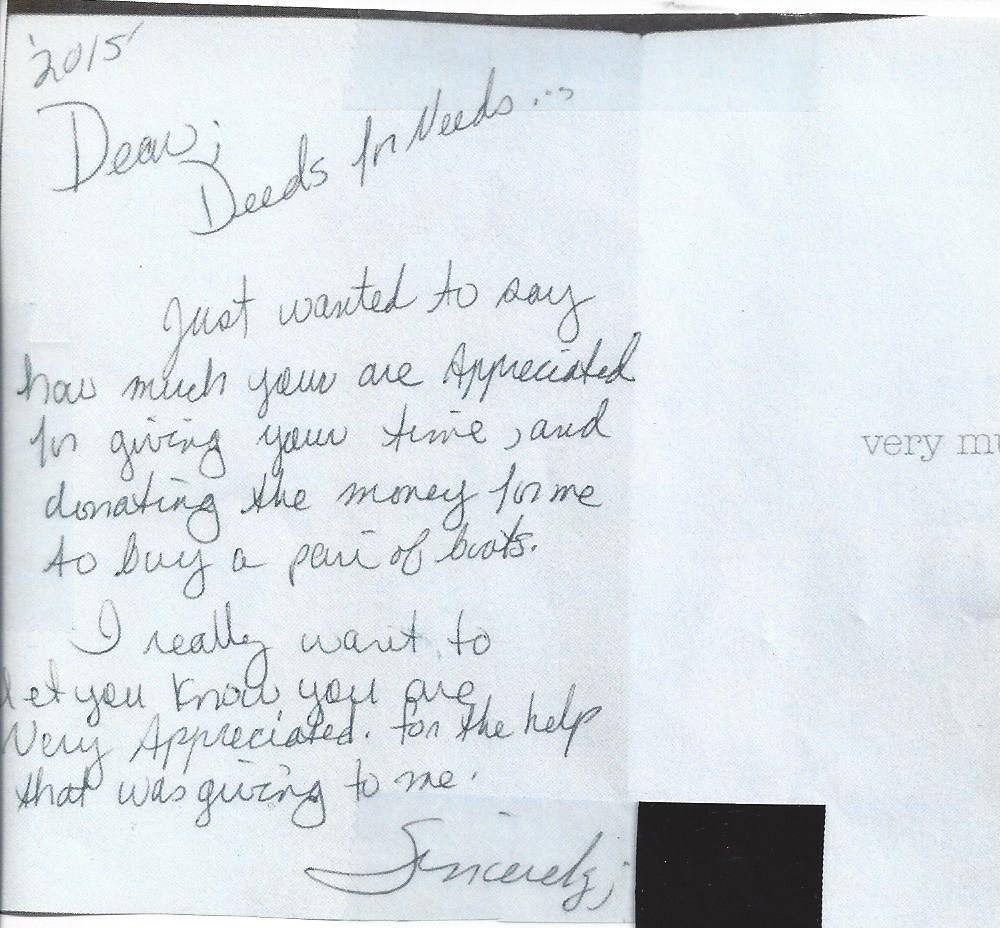 '2015'
Dear;
Deeds for Needs...
Just wanted to say
how much your are Appreciated
for giving your time, and
donating the money for me
to buy a pair of boots.
I really want to
let you know you are
Very Appreciated. for the help
that was giving to me.
Sincerely;
very mu